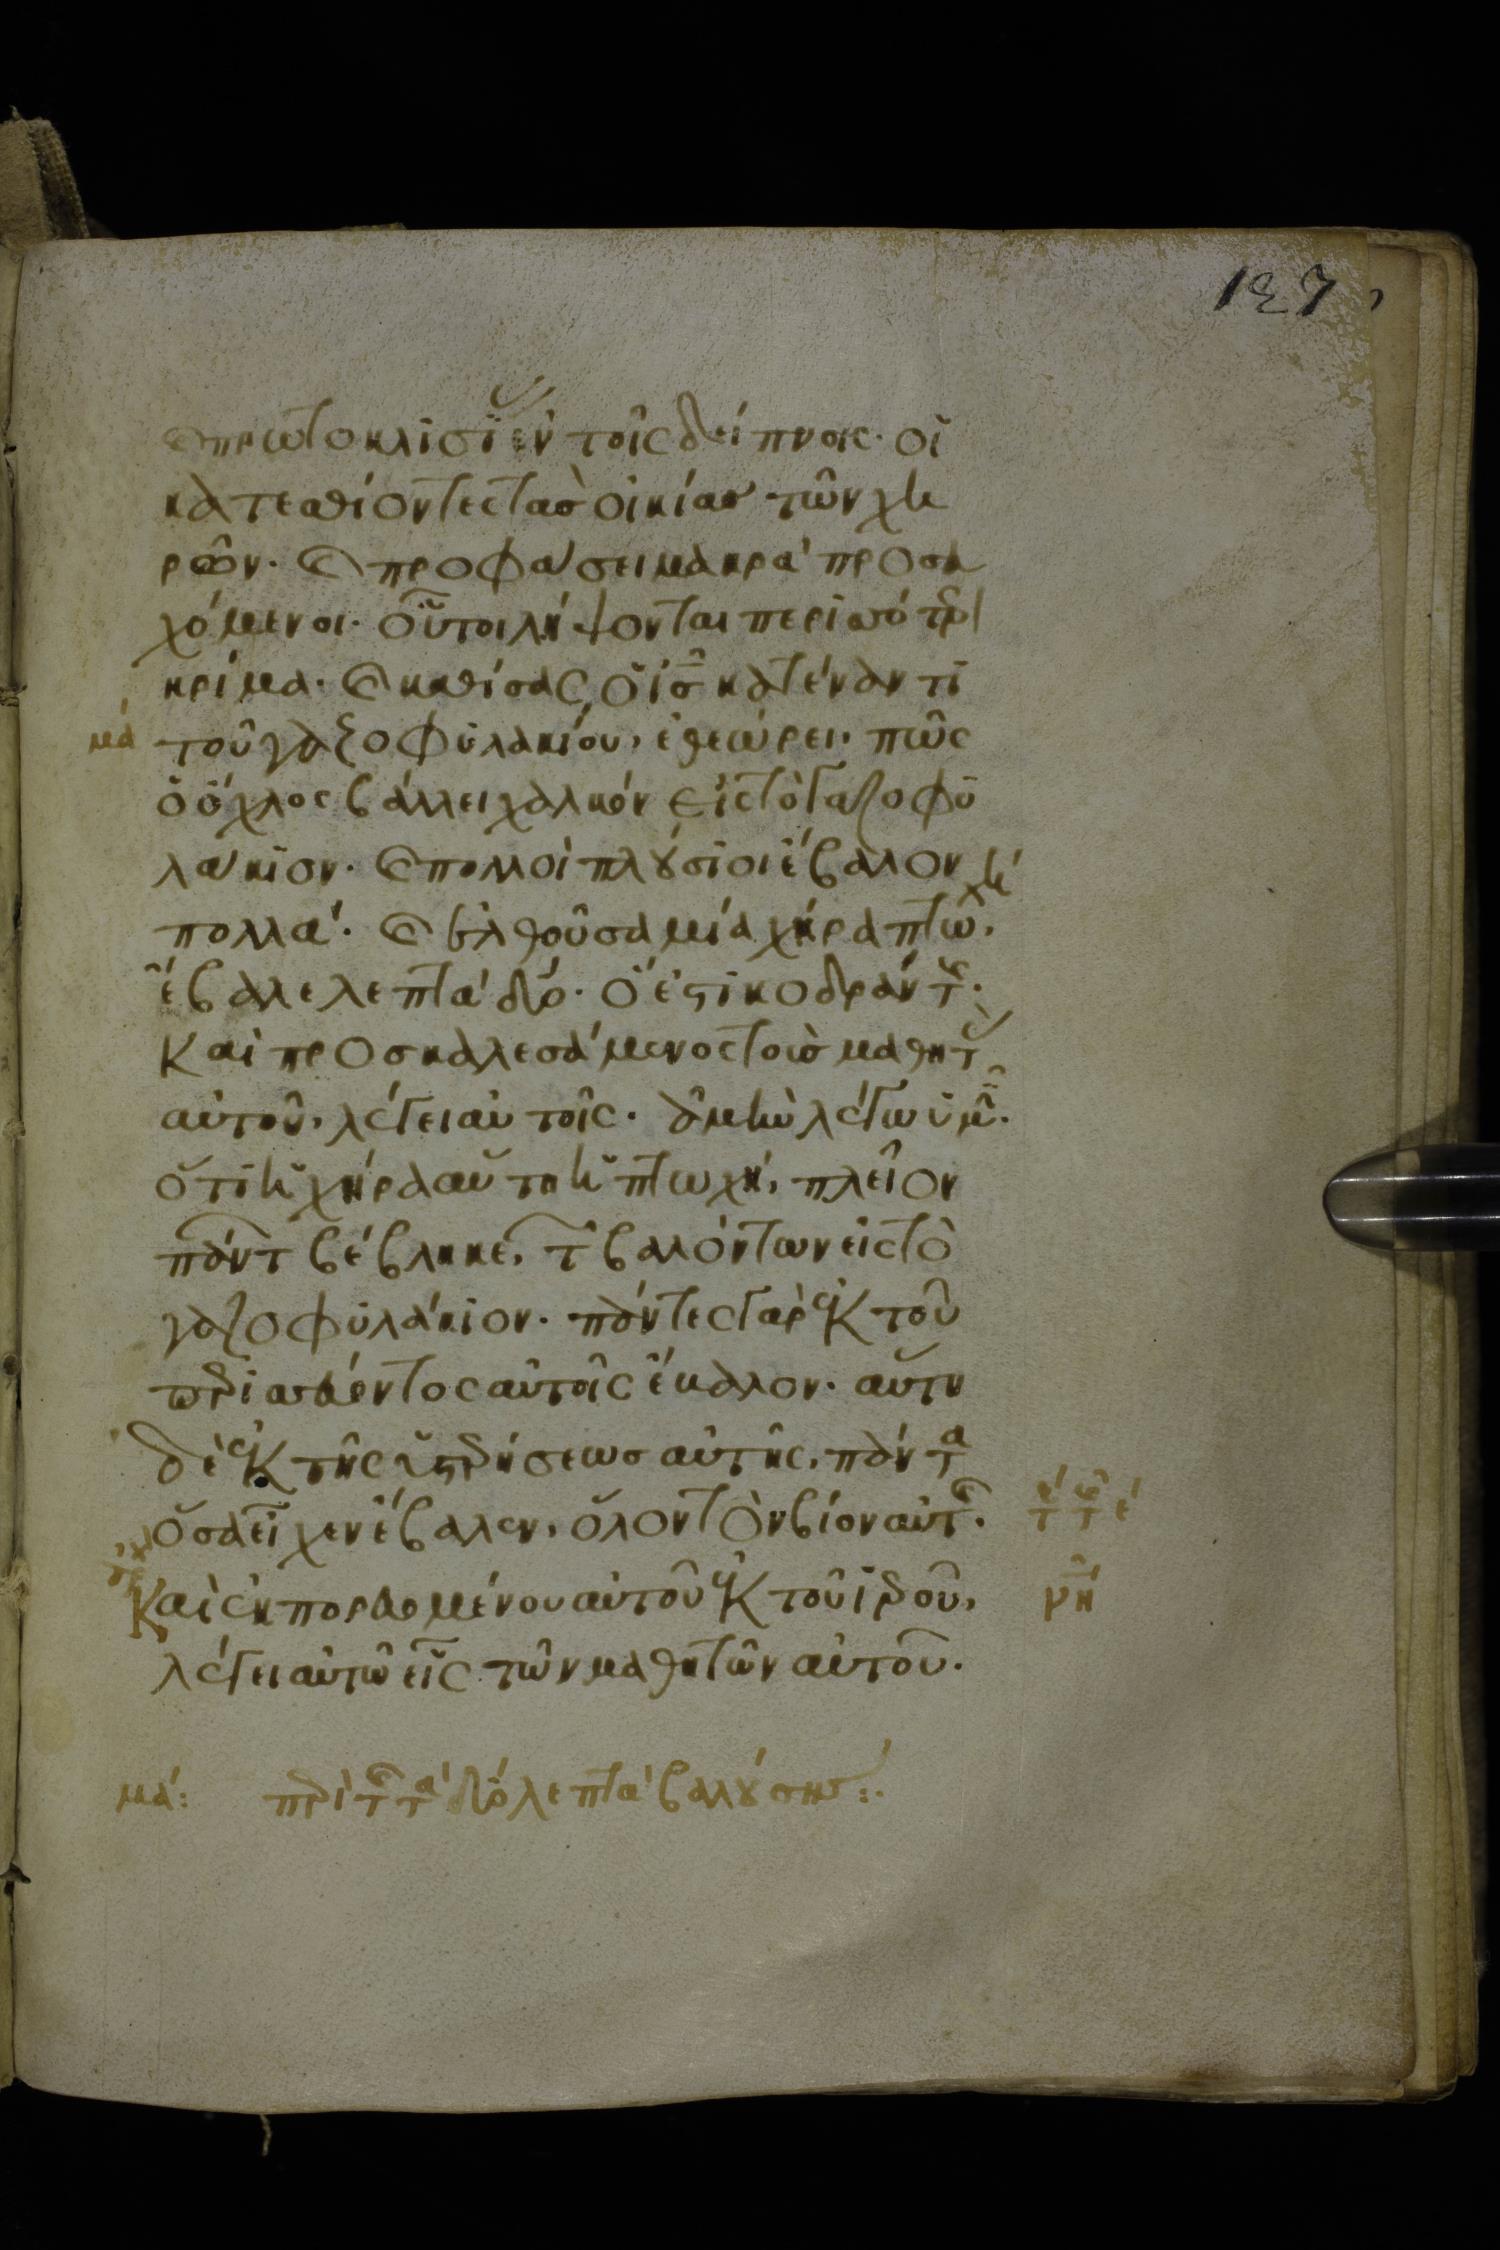 127
καὶ πρωτοκλισί ἐν τοῖς δείπνοις· οἱ
κατεσθίοντες τὰς οἰκίας τῶν χη
ρῶν· καὶ προφάσει μακρὰ προσευ
χόμενοι· οὗτοι λήψονται περισσότερ
κρίμα· καὶ καθίσας ὁ ἰς κατέναντι
μα τοῦ γαζοφυλακίου, ἐθεώρει· πῶς
ὁ ὄχλος βάλλει χαλκὸν εἰς τὸ γαζοφυ
λάκιον· καὶ πολλοὶ πλούσιοι ἔβαλον
πολλά· καὶ ἐλθοῦσα μία χήρα πτωχή,
ἔβαλε λεπτὰ δύο· ὅ ἐστι κοδράντης·
Καὶ προσκαλεσάμενος τοὺς μαθητ
αὐτοῦ, λέγει αὐτοῖς· ἀμὴν λέγω ὑμῖν·
ὅτι ἡ χήρα αὕτη ἡ πτωχή, πλεῖον
πάντ βέβληκε, τ βαλόντων εἰς τὸ
γαζοφυλάκιον· πάντες γὰρ ἐκ τοῦ
περισσεύοντος αὐτοῖς ἔβαλον· αὕτη
δὲ ἐκ τῆς ὑστερήσεως αὐτῆς, πάντα
ὅσα εἶχεν ἔβαλεν, ὅλον τὸν βίον αὐτῆς·
Καὶ ἐκπορευομένου αὐτοῦ ἐκ τοῦ ἱεροῦ, ρμ
λέγει αὐτῷ εἷς τῶν μαθητῶν αὐτοῦ·
μα: περὶ τῆς τὰ δύο λεπτὰ βαλούσης:·